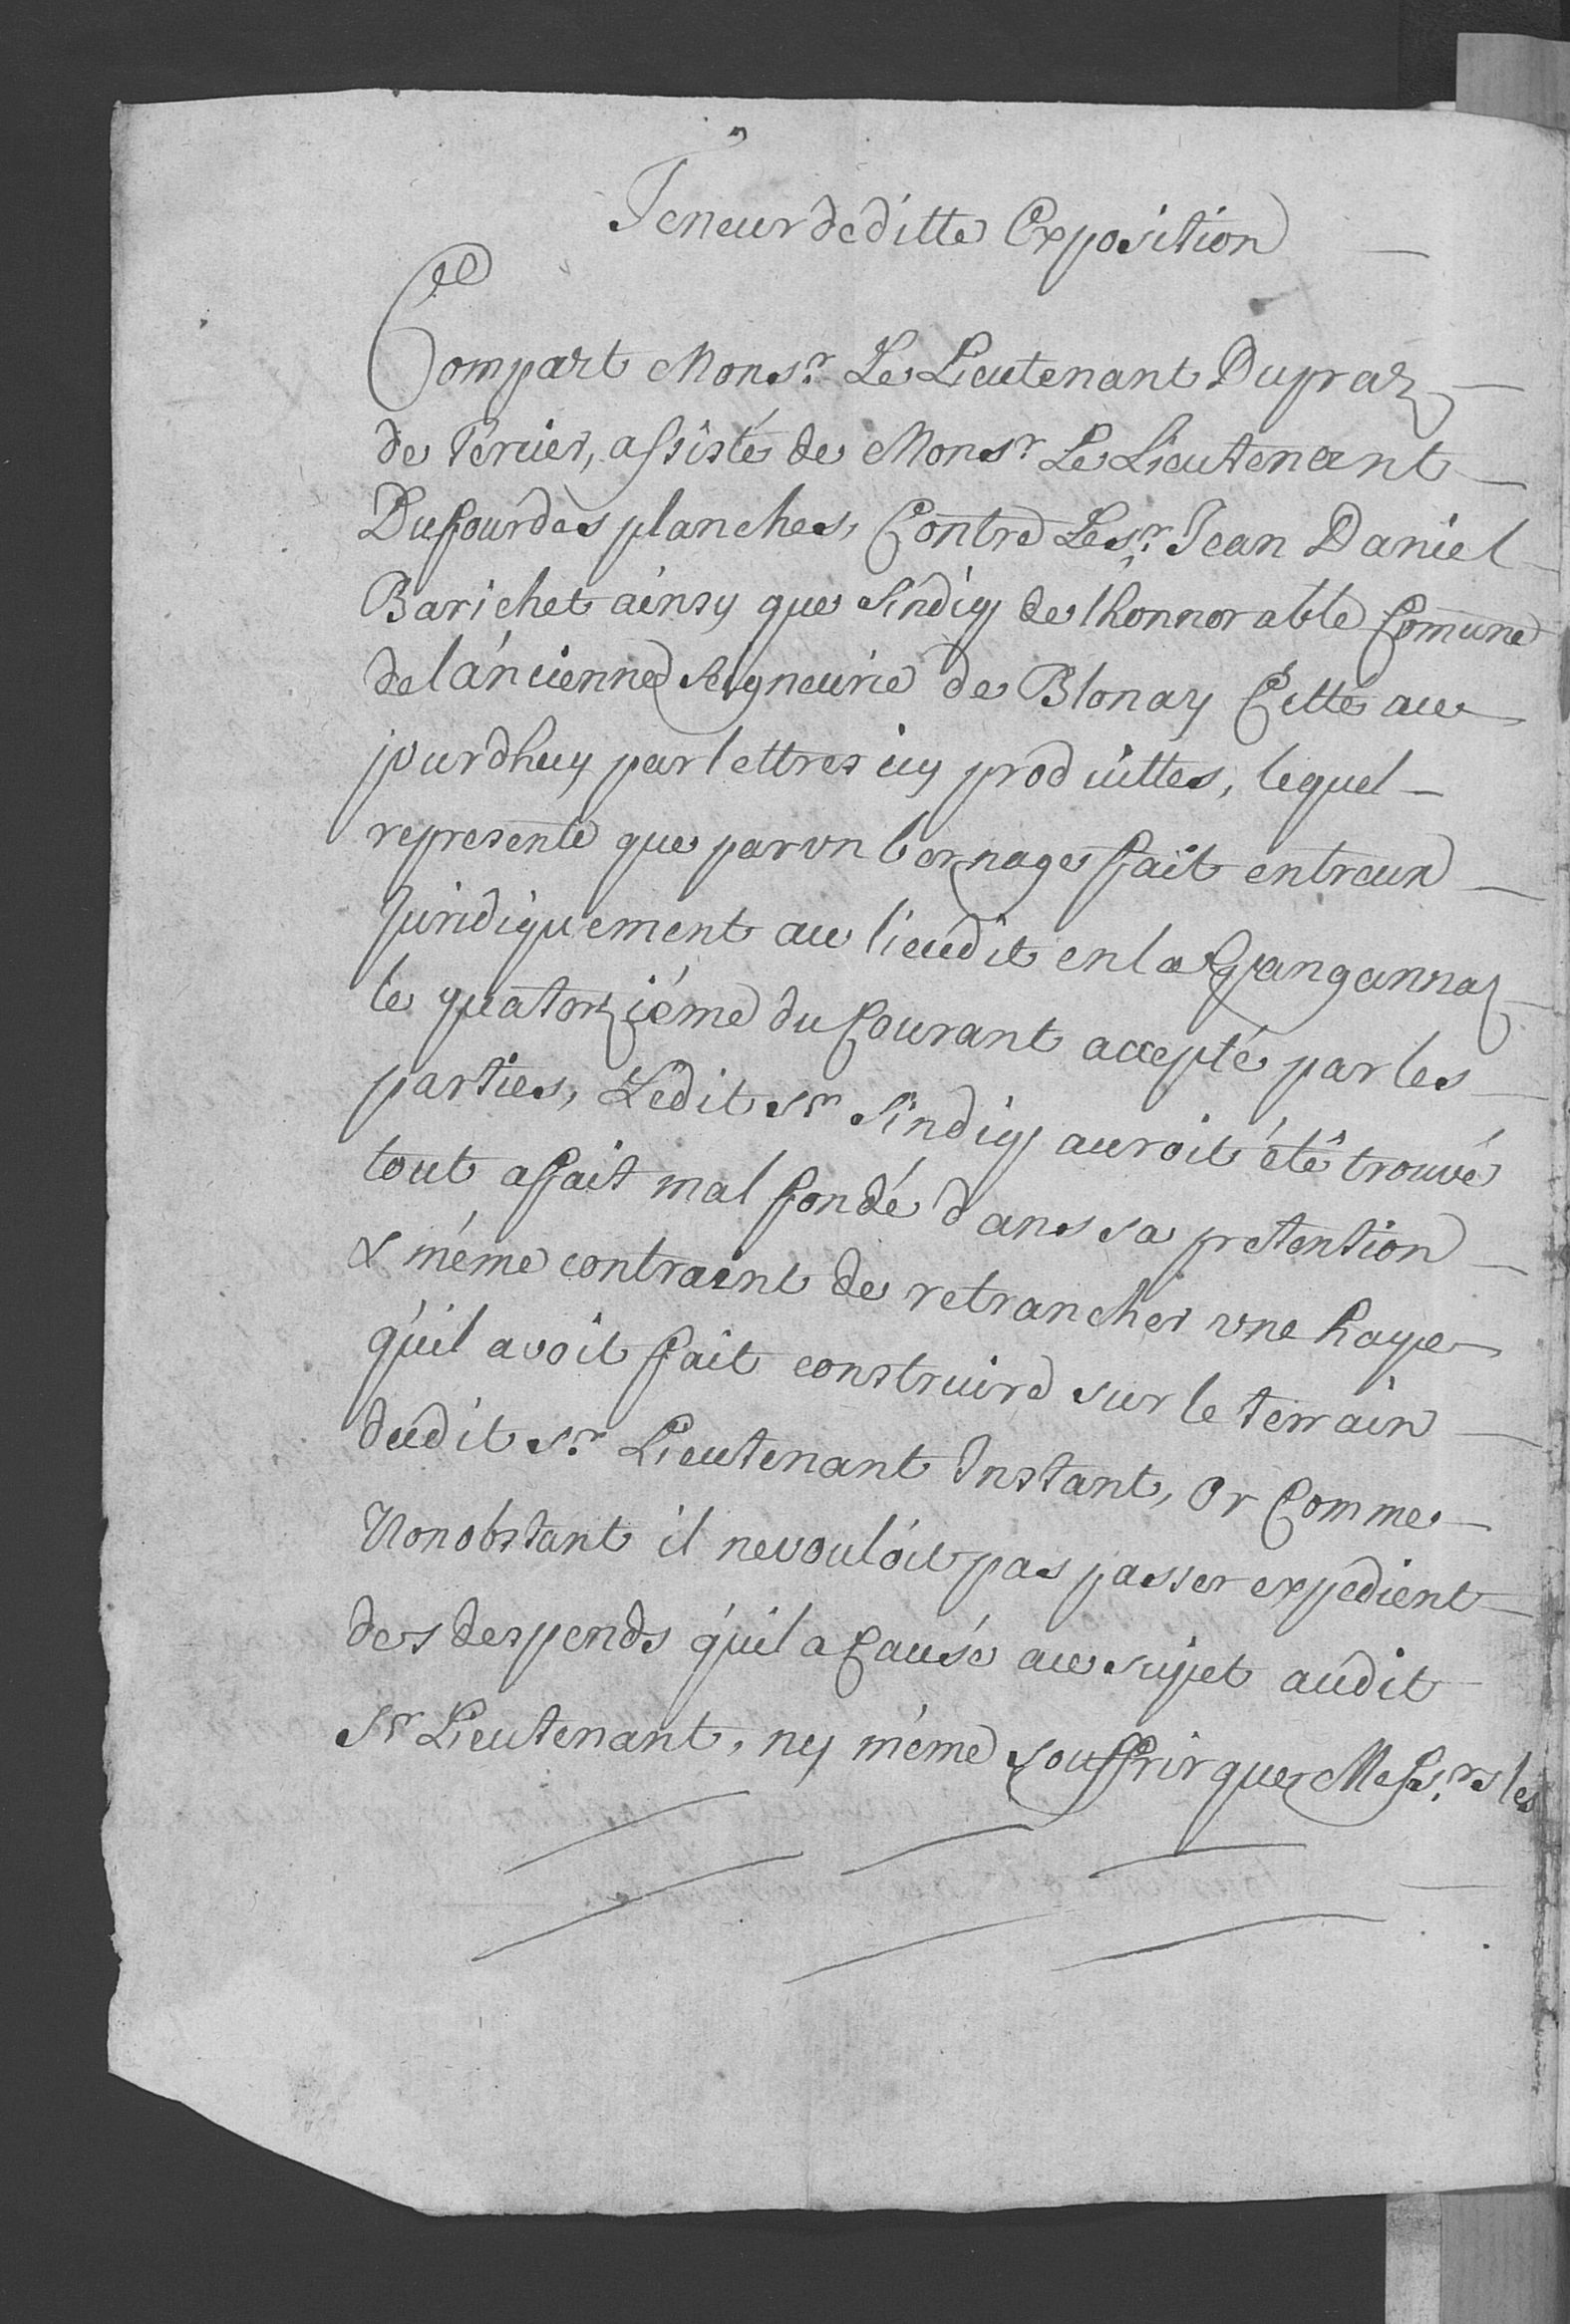 Teneur de ditte Exposition
Compart Mons.r Le Lieutenant Dupraz
de Perier, assisté de Mons.r Le Lieutenant
Dufour des planches, Contre Le s.r Jean Daniel
Barichet ainsy que Sindiq de lhonnorable Comune
de lancienne Seigneurie de Blonay Citté au
jourdhuy par lettres icy produittes, lequel
represente que par un bornage fait entreux
Juridiquement au lieudit en la
le quatorziéme du Courant accepté par les
parties, Ledit s.r Sindiq auroit été trouvé
tout affait mal fondé dans sa pretention
& méme contraint de retrancher une haye
quil avoit fait construire sur le terrain
dudit s.r Lieutenant Instant, Or Comme
Nonobstant il ne vouloit pas passer expedient
des despends quil a Causé au sujet audit
s.r Lieutenant, ny méme souffrir que Mess.rs les